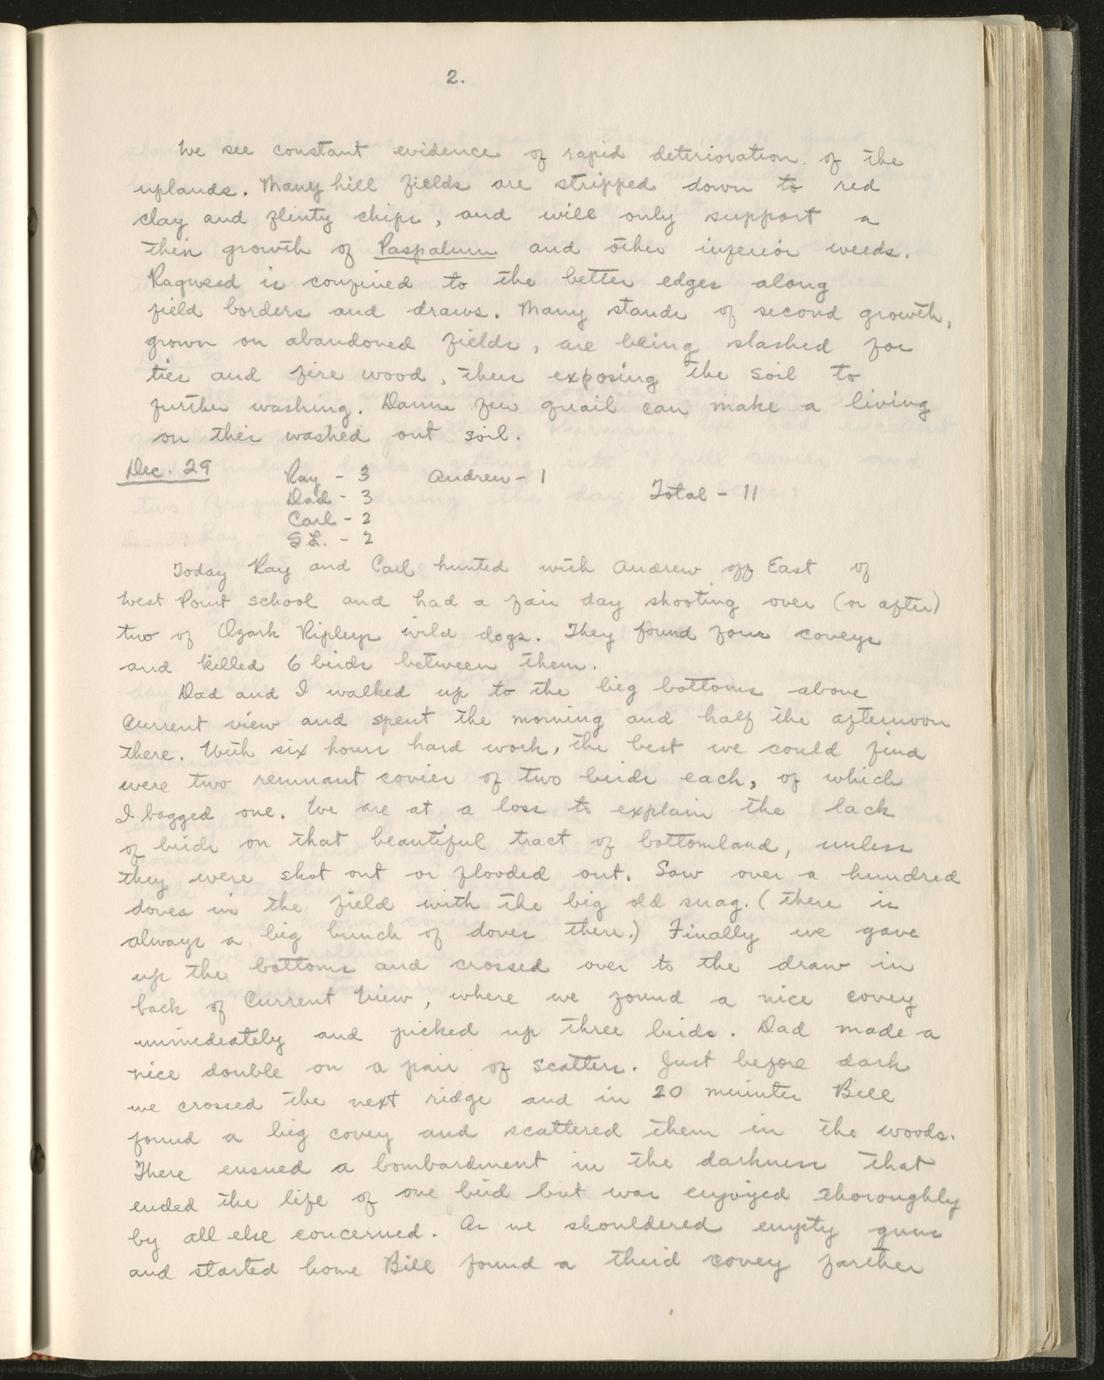 2.
We see constant evidence of rapid deterioration of the
uplands. Many hill fields are stripped down to red
clay and flinty chips, and will only support a
thin growth of Paspalum and other inferior weeds.
Ragweed is confined to the better edges along
field borders and draws. Many stands of second growth,
grown on abandoned fields, are being slashed for
ties and fire wood, thus exposing the soil to
further washing. Damn few quail can make a living
on this washed out soil.
Dec. 29 Ray - 3 Andrew - 1 Total - 11
Dad - 3
Carl - 2
S.L. - 2
Today Ray and Carl hunted with Andrew off East of
West Point school and had a fair day shooting over (or after)
two of Ozark Ripleys wild dogs. They found four coveys
and killed 6 birds between them.
Dad and I walked up to the big bottoms above
Current view and spent the morning and half the afternoon
there. With six hours hard work, the best we could find
were two remnant covies of two birds each, of which
I bagged one. We are at a loss to explain the lack
of birds on that beautiful tract of bottomland, unless
they were shot out or flooded out. Saw over a hundred
doves in the field with the big old snag. (there is
always a big bunch of doves there.) Finally we gave
up the bottoms and crossed over to the draw in
back of Current View, where we found a nice covey
immedeately and picked up three birds. Dad made a
nice double on a pair of scatters. Just before dark
we crossed the next ridge and in 20 minutes Bill
found a big covey and scattered them in the woods.
There ensued a bombardment in the darkness that
ended the life of one bird but was enjoyed thoroughly
by all else concerned. As we shouldered empty guns
and started home Bill found a third covey farther